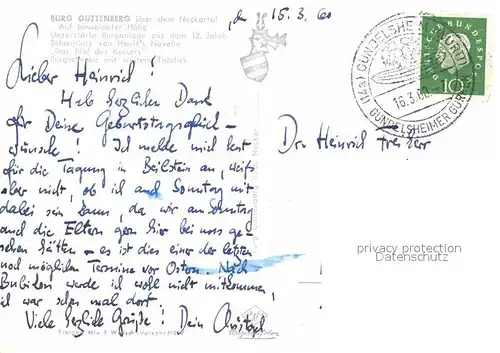 BURG GUTTENBERG über dem Neckartal
Auf bewaldeter Höhe
Unzerstörte Burganlage aus dem 12. Jahrh.
Schauplatz von Hauff's Novelle
„Das Bild des Kaisers"
Burgschenke mit weitem Talblick
den 15.3.60
Lieber Heinrich!
Hab herzlichen Dank
für Deine Geburtstagsglück-
wünsche! Ich melde mich fest
für die Tagung in Beilstein an, weiß
aber nicht, ob ich am Sonntag mit
dabei sein kann, da wir am Sonntag
auch die Eltern gern hier bei uns ge-
sehen hätten – es ist dies einer der letzten
noch möglichen Termine vor Ostern. Nach
werde ich wohl nicht mitkommen,
ich war schon mal dort.
Viele herzliche Grüße! Dein Christoph
Dr. Heinrich
(14a) GUNDELSHEIM
16.3.60
GUNDELSHEIMER
DEUTSCHE BUNDESPOST
10
privacy protection
Datenschutz